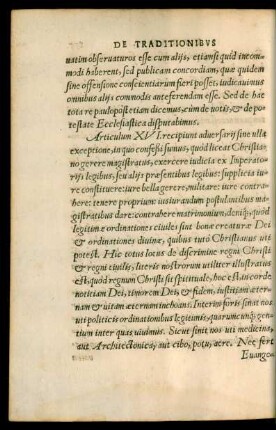 DE TRADITIONIBVS
uatim obseruaturos esse cum alijs, etiamsi quid incom-
modi haberent, sed publicam concordiam, quæ quidem
sine offensione conscientiarum fieri posset, iudicauimus
omnibus alijs commodis anteferendam esse. Sed de hac
tota re paulo post etiam dicemus, cùm de uotis, & de po-
testate Ecclesiastica disputabimus.
Articulum XVI. recipiunt aduersarij sine ulla
exceptione, in quo confessi sumus, quod liceat Christia-
no gerere magistratus, exercere iudicia ex Imperato-
rijs legibus, seu alijs præsentibus legibus: supplicia iu-
re constituere: iure bella gerere, militare: iure contra-
here: tenere proprium: iusiurandum postulantibus ma-
gistratibus dare: contrahere matrimonium, deniq, quòd
legitimæ ordinationes ciuiles sint bonæ creaturæ Dei
& ordinationes diuinæ, quibus tutò Christianus uti
potest. Hic totus locus de discrimine regni Christi
& regni ciuilis, literis nostrorum utiliter illustratus
est, quòd regnum Christi sit spirituale, hoc est, in corde
noticiam Dei, timorem Dei, & fidem, iustitiam æter-
nam & uitam æternam inchoans. Interim foris sinat nos
uti politicis ordinationibus legitimis, quarumcunq; gen-
tium inter quas uiuimus. Sicut sinit nos uti medicina,
aut Architectonica, aut cibo, potu, aere. Nec fert
Euange-